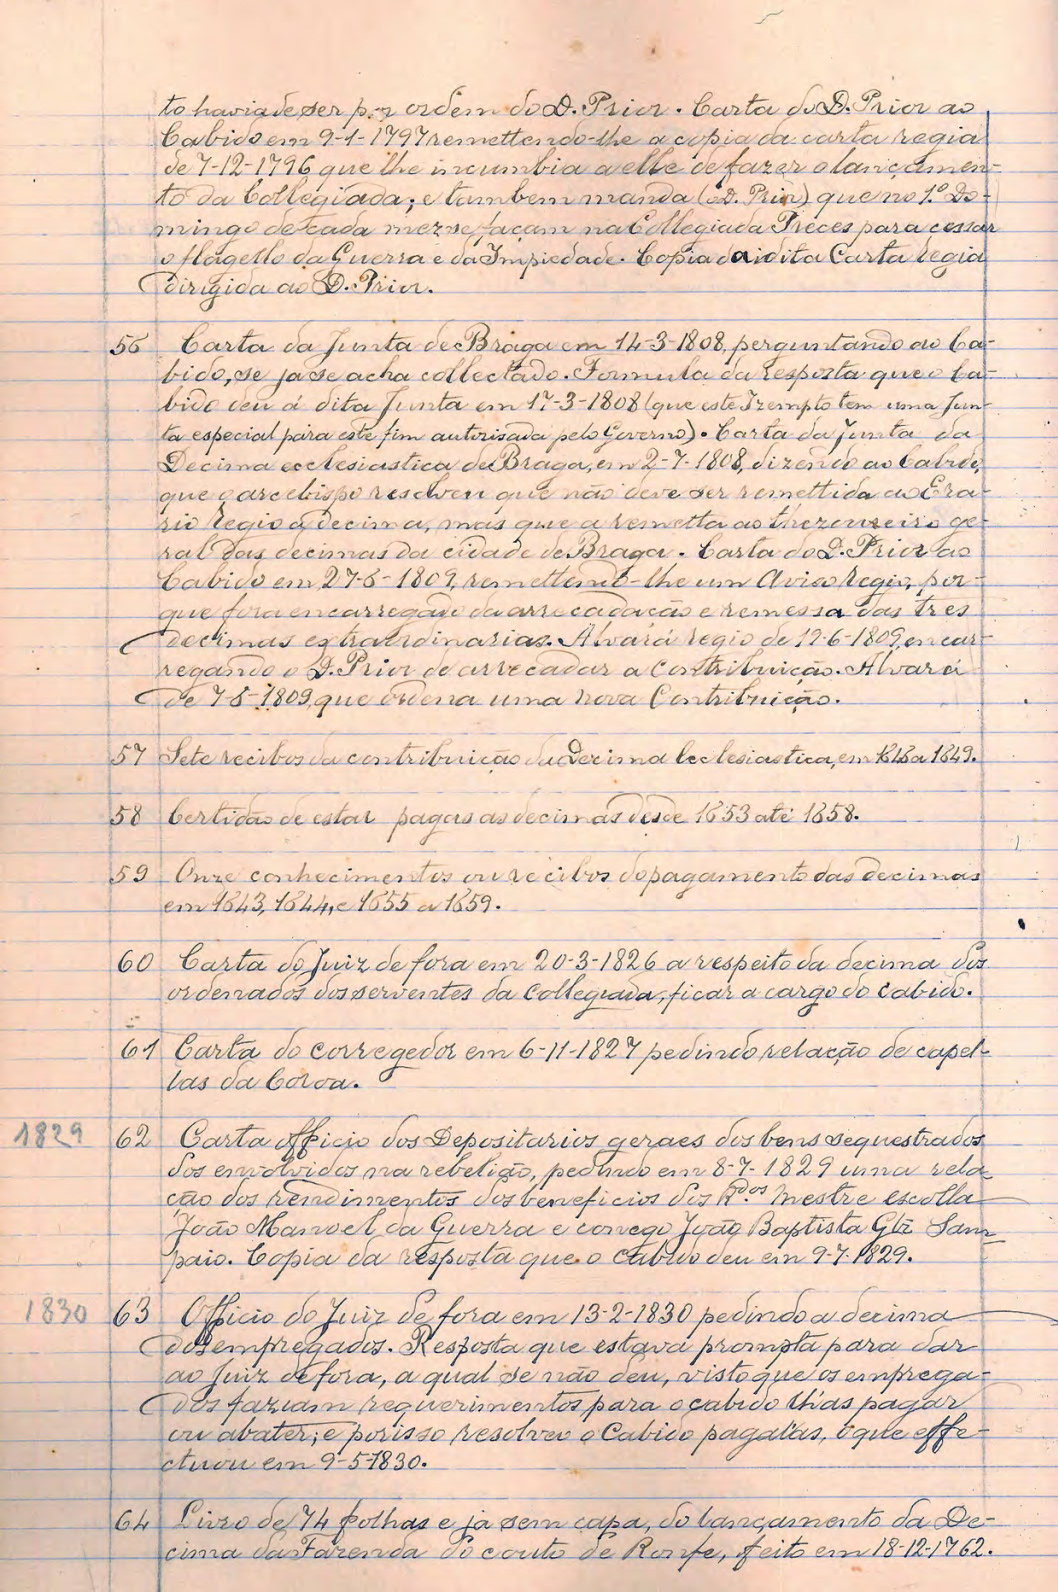 to havia de ser por ordem do D. Prior. Carta do D. Prior ao
Cabido em 9-1-1797 remettendo-lhe a copia da carta regia
de 7-12-1796 que lhe incumbia a elle de fazer o lançamen-
to da Collegiada; e tambem manda (o D. Prior) que no 1.º Do-
mingo de cada mez se façam na Collegiada Preces para cessar
o flagello da Guerra e da Impiedade. Copia da dita Carta regia
dirigida ao D. Prior.
56 Carta da Junta de Braga em 14-3-1808, perguntando ao Ca-
bido, se ja se acha collectado. Formula da resposta que o Ca-
bido deu á dita Junta em 17-3-1808 (que este Izempto tem uma Jun-
ta especial para este fim autorisada pelo Governo). Carta da Junta da
Decima ecclesiastica de Braga, em 2-7-1808, dizendo ao Cabido,
que o arcebispo resolveu que não deve ser remettida ao Era-
rio Regio a decima, mas que a remetta ao thezoureiro ge-
ral das decimas da cidade de Braga. Carta do D. Prior ao
Cabido em 27-6-1809, remettendo-lhe um Aviso regio, por-
que fora encarregado da arrecadação e remessa das tres
decimas extraordinarias. Alvará regio de 12-6-1809, encar-
regando o D. Prior de arrecadar a Contribuição. Alvará
de 7-6-1809, que ordena uma nova Contribuição.
57 Sete recibos da contribuição da Decima Ecclesiastica, em a 1849.
58 Certidão de estar pagas as decimas desde 1853 até 1858.
59 Onze conhecimentos ou recibos do pagamento das decimas
em 1843, 1844, e 1855 a 1859.
60 Carta do Juiz de fora em 20-3-1826 a respeito da decima dos
ordenados dos serventes da Collegiada, ficar a cargo do Cabido.
61 Carta do corregedor em 6-11-1827 pedindo relação de capel-
las da Coroa.
1829 62 Carta officio dos Depositarios geraes dos bens sequestrados
dos envolvidos na rebelião, pedindo em 8-7-1829 uma rela-
ção dos rendimentos dos beneficios dos R.dos Mestre escolla
João Manoel da Guerra e conego João Baptista Glz Sam-
paio. Copia da resposta que o Cabido deu em 9-7-1829.
1830 63 Officio do Juiz de fora em 13-2-1830 pedindo a decima
dos empregados. Resposta que estava prompta para dar
ao Juiz de fora, a qual se não deu, visto que os emprega-
dos faziam requerimentos para o cabido lh'as pagar
ou abater; e por isso resolveu o Cabido pagal'as, o que effe-
ctuou em 9-5-1830.
64 Livro de 74 folhas e já sem capa, do lançamento da De-
cima da Fazenda do couto de Ronfe, feito em 18-12-1762.